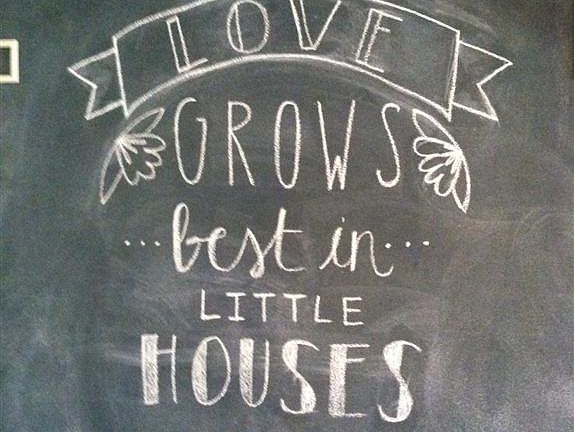 LOVE
GROWS
...best in...
LITTLE
HOUSES